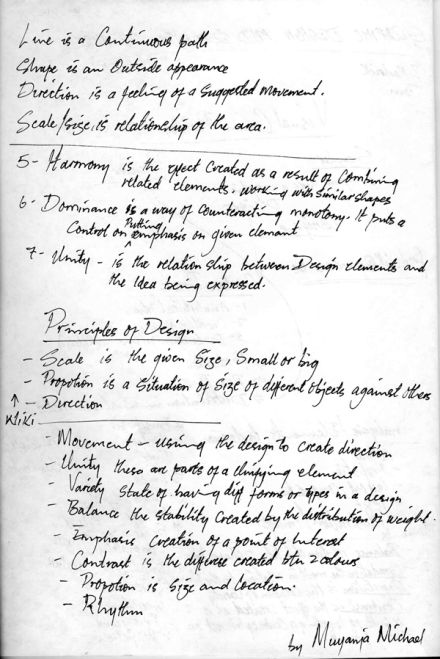 Line is a Continuous path
Shape is an Outside appearance
Direction is a feeling of a Suggested Movement.
Scale/size, is relationship of the area.
5- Harmony is the effect Created as a result of Combining
related elements. working with Similar shapes
6- Dominance is a way of counteracting monotomy. It puts a
Control on Putting emphasis on given elemant
7- Unity - is the relationship between Design elements and
the Idea being expressed.
Principles of Design
- Scale is the given Size, Small or big
- Propotion is a Situation of Size of different objects against others
↑ - Direction
Wiki
- Movement - using the design to create direction
- Unity these are parts of a Unifying element
- Variety State of having diff forms or types in a design
- Balance the stability Created by the distribution of weight.
- Emphasis Creation of a point of Interest
- Contrast is the differese created btn 2 colours
- Propotion is Size and Location.
- Rhythm
by Muyanja Michael